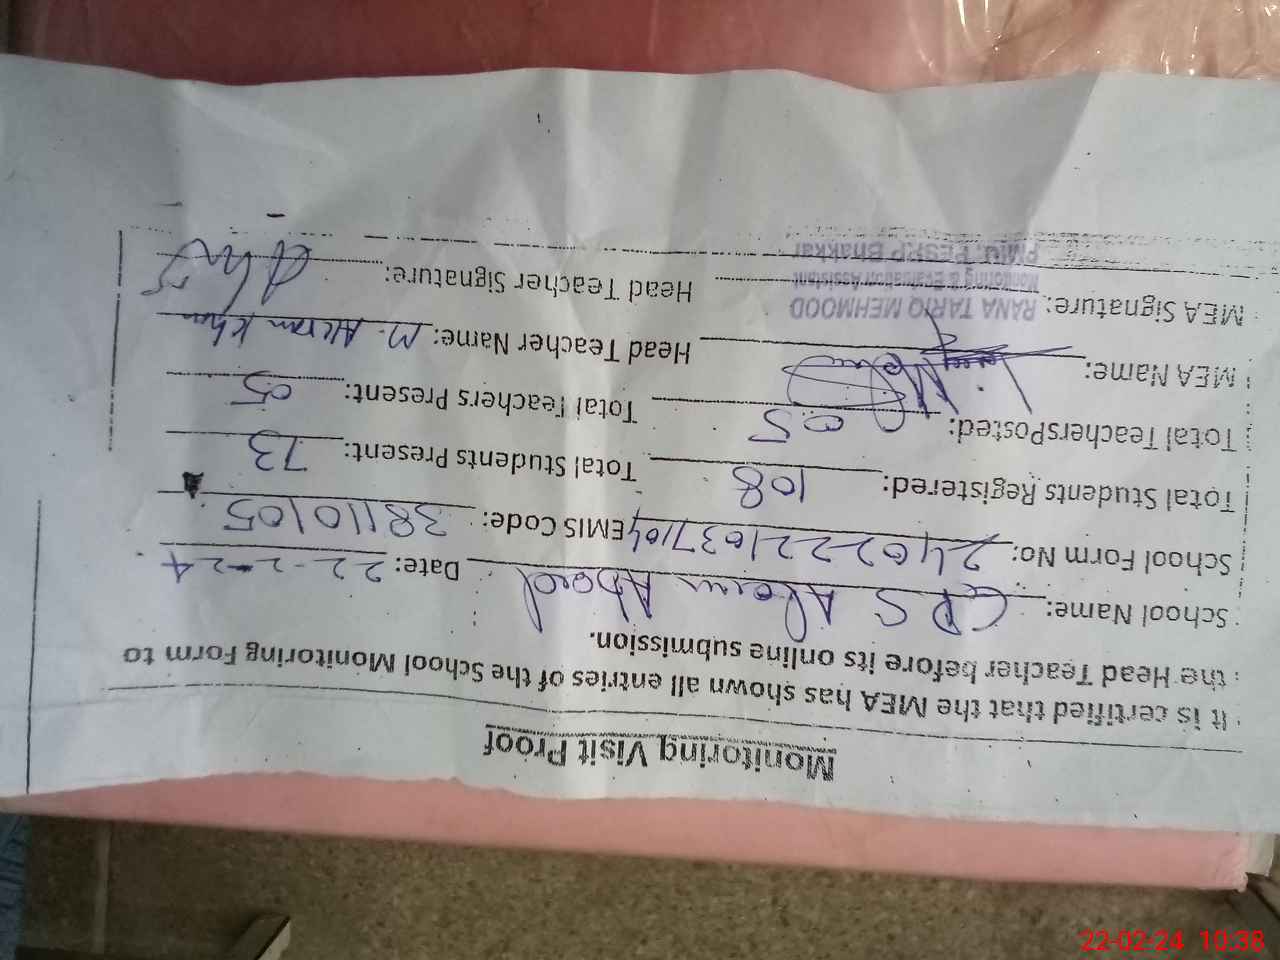 Monitoring Visit Proof
It is certified that the MEA has shown all entries of the School Monitoring Form to
the Head Teacher before its online submission.
School Name: GPS Alam Abad Date: 22-2-24
School Form No: 2402221037104 EMIS Code: 38110105
Total Students Registered: 108 Total Students Present: 73
Total Teachers Posted: 05 Total Teachers Present: 05
MEA Name: Head Teacher Name: M. Akram Khan
MEA Signature: Head Teacher Signature:
RANA TARIQ MEHMOOD
Monitoring & Evaluation Assistant
PMIU, PESRP Bhakkar
22-02-24 10:38